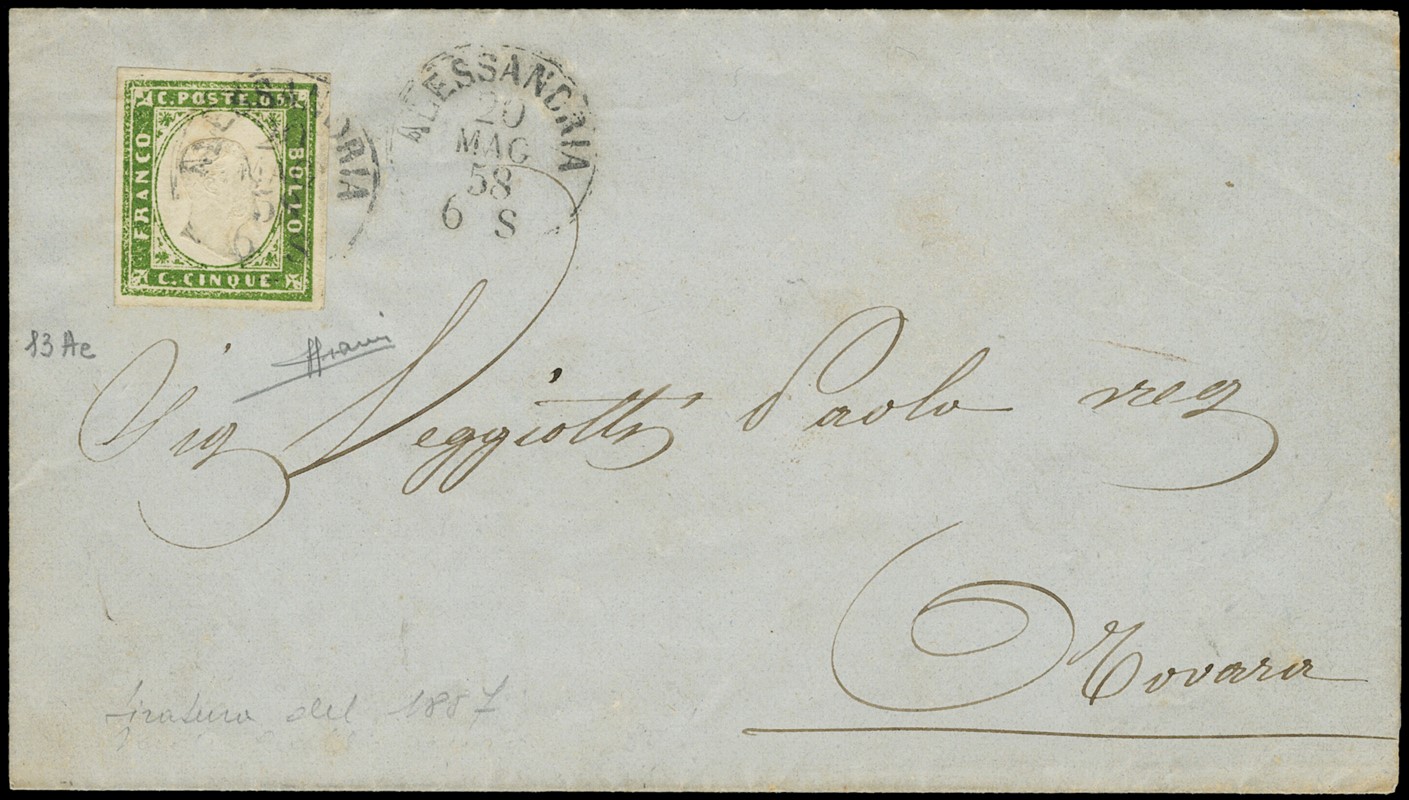 C. POSTE. 
FRANCO
BOLLO
C. CINQUE
ALESSANDRIA
ALESSANDRIA
20
MAG
58
6 S
13 Ae
Sig Veggiotti Paolo neg
Novara
tiratura del 1857